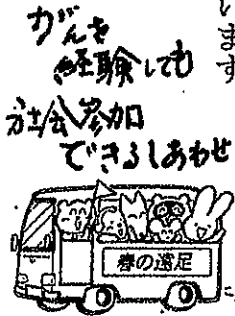 います
がんを
経験しても
社会参加
できるしあわせ
春の遠足